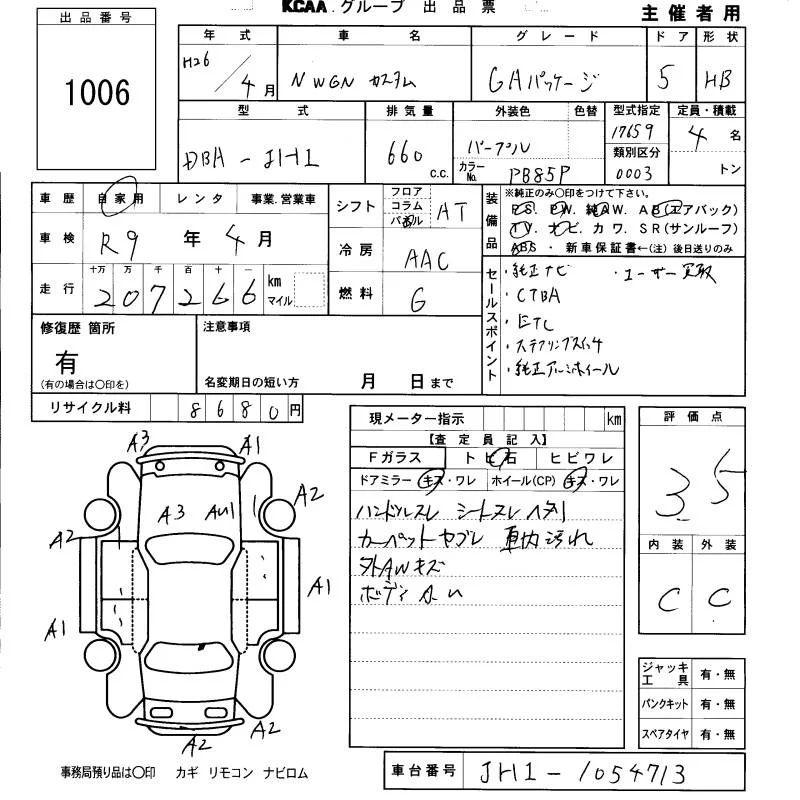 KCAA. グループ 出品票
主催者用
出品番号
1006
年式 車名 グレード ドア 形状
H26/4月 NWGN カスタム GAパッケージ 5 HB
型式 排気量 外装色 色替 型式指定 定員・積載
DBA-JH1 660 c.c. パープル 17659 4名
カラーNo. PB85P 類別区分 0003 トン
車歴 自家用 レンタ 事業.営業車
車検 R9年 4月
走行 十万 万 千 百 十 一
207266 km マイル
シフト フロア コラム パネル AT
冷房 AAC
燃料 G
装備品 ※純正のみ○印をつけて下さい。
P.S. P.W. 純A.W. A.B(エアバック)
T.V. ナビ. カワ. SR(サンルーフ)
ABS・新車保証書←(注) 後日送りのみ
セールスポイント
・純正ナビ ・ユーザー買取
・CTBA
・ETC
・ステアリングスイッチ
・純正アルミホイール
修復歴 箇所
有
(有の場合は○印を)
注意事項
名変期日の短い方 月 日まで
リサイクル料 8680円
現メーター指示 km
【査定員記入】
Fガラス トビ石 ヒビワレ
ドアミラー キズ・ワレ ホイール(CP) キズ・ワレ
ハンドルスレ シートスレ ヘタリ
カーペットヤブレ 車内汚れ
外AWキズ
ボディ A・U
評価点
3.5
内装 外装
C C
ジャッキ工具 有・無
パンクキット 有・無
スペアタイヤ 有・無
A3 A1
A2
A3 AU1
A2
A1
A1
A2
A2
事務局預り品は○印 カギ リモコン ナビロム
車台番号 JH1-1054713